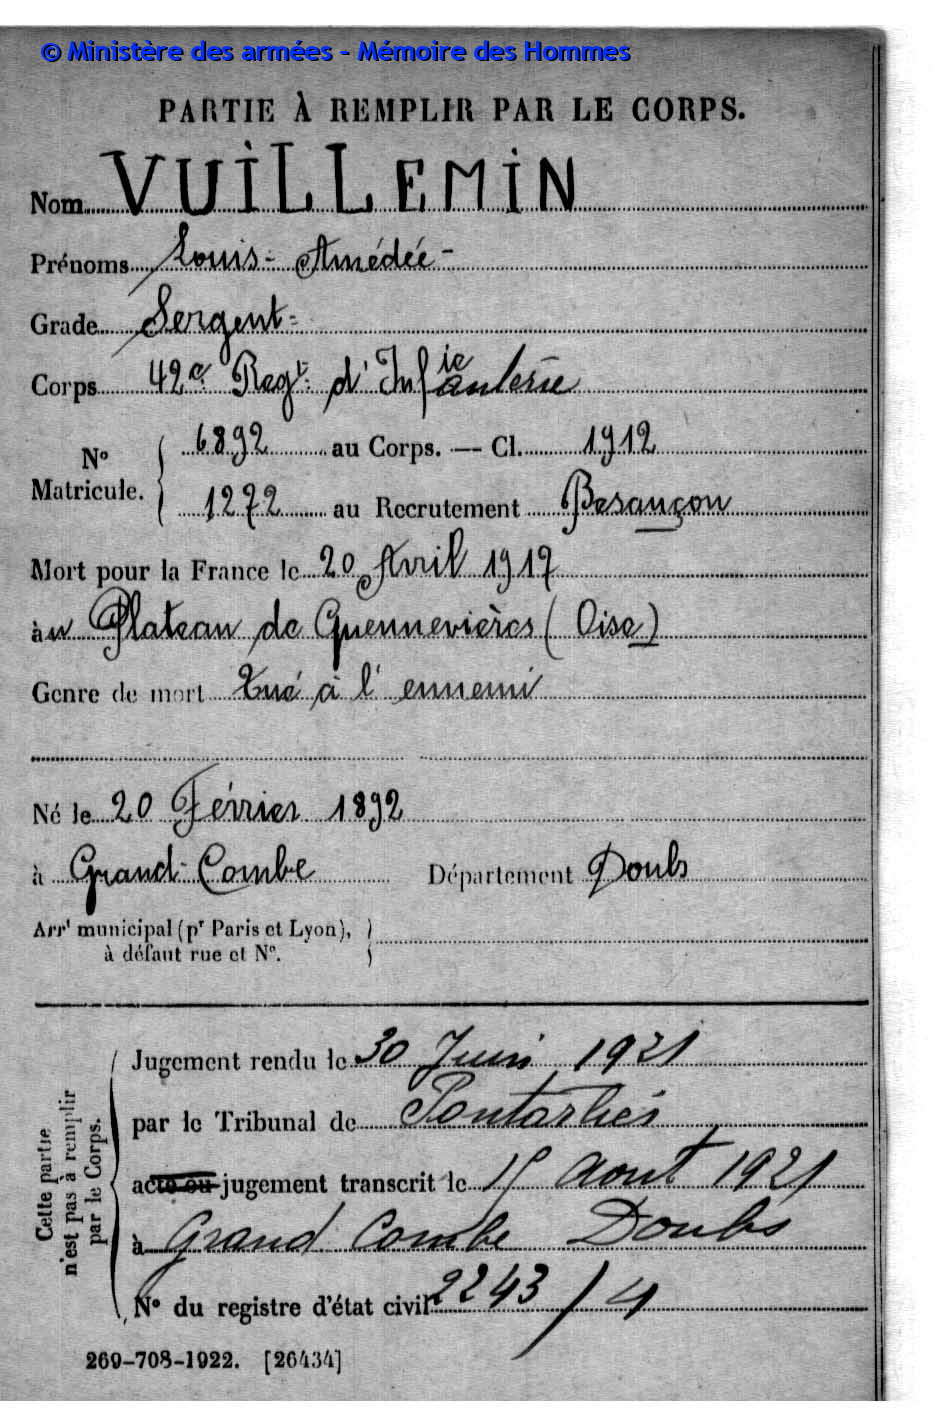 © Ministère des armées - Mémoire des Hommes
PARTIE À REMPLIR PAR LE CORPS.
Nom VUILLEMIN
Prénoms Louis - Amédée -
Grade Sergent -
Corps 42e Regt d'Infanterie ie
No Matricule. 6892 au Corps. — Cl. 1912
1272 au Recrutement Besançon
Mort pour la France le 20 Avril 1917
àu Plateau de Quennevières (Oise)
Genre de mort Tué à l'ennemi
Né le 20 Février 1892
à Grand-Combe Département Doubs
Arrt municipal (pr Paris et Lyon),
à défaut rue et No.
Cette partie n'est pas à remplir par le Corps.
Jugement rendu le 30 Juin 1921
par le Tribunal de Pontarlier
acte ou jugement transcrit le 15 Aout 1921
à Grand Combe Doubs
No du registre d'état civil 2243/4
269-708-1922. [26434]